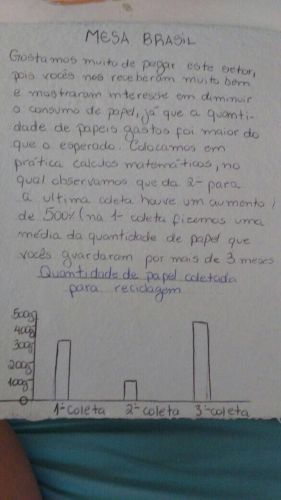 MESA BRASIL
Gostamos muito de pegar este setor,
pois vocês nos receberam muito bem
e mostraram interesse em diminuir
o consumo de papel, já que a quanti-
dade de papeis gastos foi maior do
que o esperado. Colocamos em
prática calculos matemáticos, no
qual observamos que da 2ª para
a ultima coleta houve um aumento
de 500% (na 1ª coleta fizemos uma
média da quantidade de papel que
vocês guardaram por mais de 3 meses
Quantidade de papel coletada
para reciclagem
500g
400g
300g
200g
100g
0
1ª coleta 2ª coleta 3ª coleta